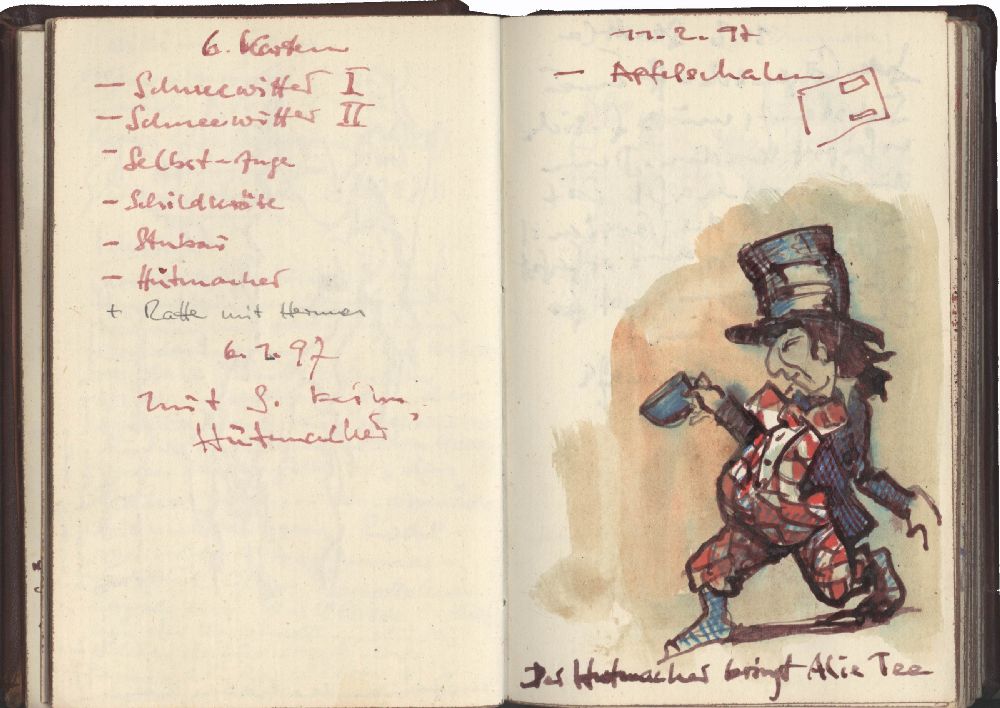 6. Karten
– Schneewittch I
– Schneewittch II
– Selbst-Auge
– Schildkröte
– Stubai
– Hutmacher
+ Ratte mit Hermes
6. 2. 97
mit G.
Hutmacher
11. 2. 97
– Apfelschalen
Der Hutmacher bringt Alice Tee